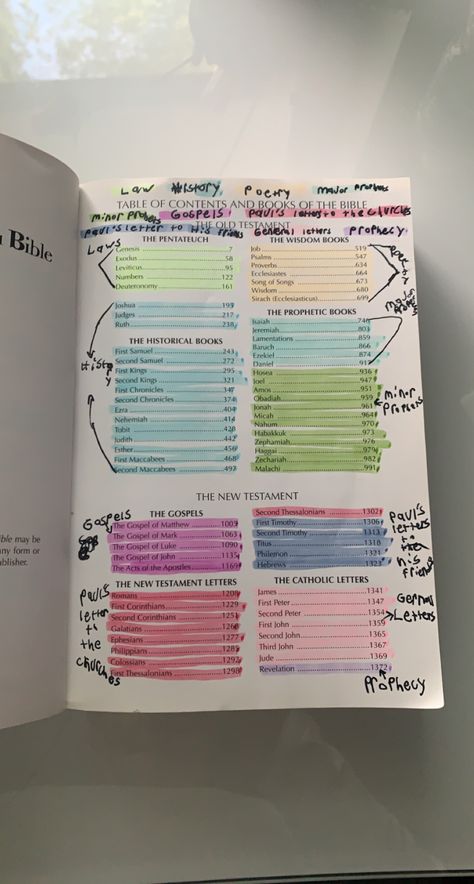 Law History Poetry Major Prophets
TABLE OF CONTENTS AND BOOKS OF THE BIBLE
Minor Gospels Paul's letters to the Churches
THE OLD TESTAMENT
Paul's letter to His friends General letters Prophecy
Bible
ible may be
any form or
ublisher.
Laws
THE PENTATEUCH
Genesis 7
Exodus 58
Leviticus 95
Numbers 122
Deuteronomy 161
Joshua 193
Judges 217
Ruth 238
THE HISTORICAL BOOKS
First Samuel 243
Second Samuel 272
First Kings 295
Second Kings 321
First Chronicles 347
Second Chronicles 374
Ezra 404
Nehemiah 414
Tobit 428
Judith 442
Esther 456
First Maccabees 468
Second Maccabees 492
THE WISDOM BOOKS
Job 519
Psalms 547
Proverbs 634
Ecclesiastes 664
Song of Songs 673
Wisdom 680
Sirach (Ecclesiasticus) 699
Poetry
THE PROPHETIC BOOKS
Isaiah 746
Jeremiah 803
Lamentations 859
Baruch 866
Ezekiel 874
Daniel 912
Hosea 936
Joel 947
Amos 951
Obadiah 959
Jonah 961
Micah 964
Nahum 970
Habakkuk 973
Zephaniah 976
Haggai 979
Zechariah 982
Malachi 991
minor
THE NEW TESTAMENT
Gospels
THE GOSPELS
The Gospel of Matthew 1009
The Gospel of Mark 1063
The Gospel of Luke 1090
The Gospel of John 1135
The Acts of the Apostles 1169
THE NEW TESTAMENT LETTERS
Romans 1208
First Corinthians 1229
Second Corinthians 1251
Galatians 1266
Ephesians 1277
Philippians 1285
Colossians 1292
First Thessalonians 1298
Paul's
letter
to
the
churches
Second Thessalonians 1302
First Timothy 1306
Second Timothy 1313
Titus 1318
Philemon 1321
Hebrews 1323
Paul's
letters
to
THE CATHOLIC LETTERS
James 1341
First Peter 1347
Second Peter 1354
First John 1359
Second John 1365
Third John 1367
Jude 1369
Revelation 1372
Letters
Prophecy